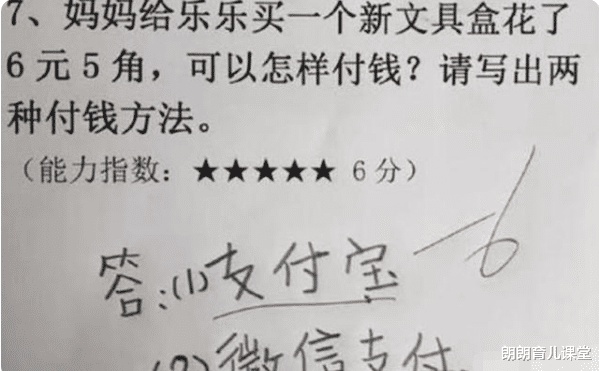 7、妈妈给乐乐买一个新文具盒花了
6元5角，可以怎样付钱？请写出两
种付钱方法。
（能力指数：★★★★★ 6分）
-6
答：(1)支付宝
(2)微信支付
朗朗育儿课堂